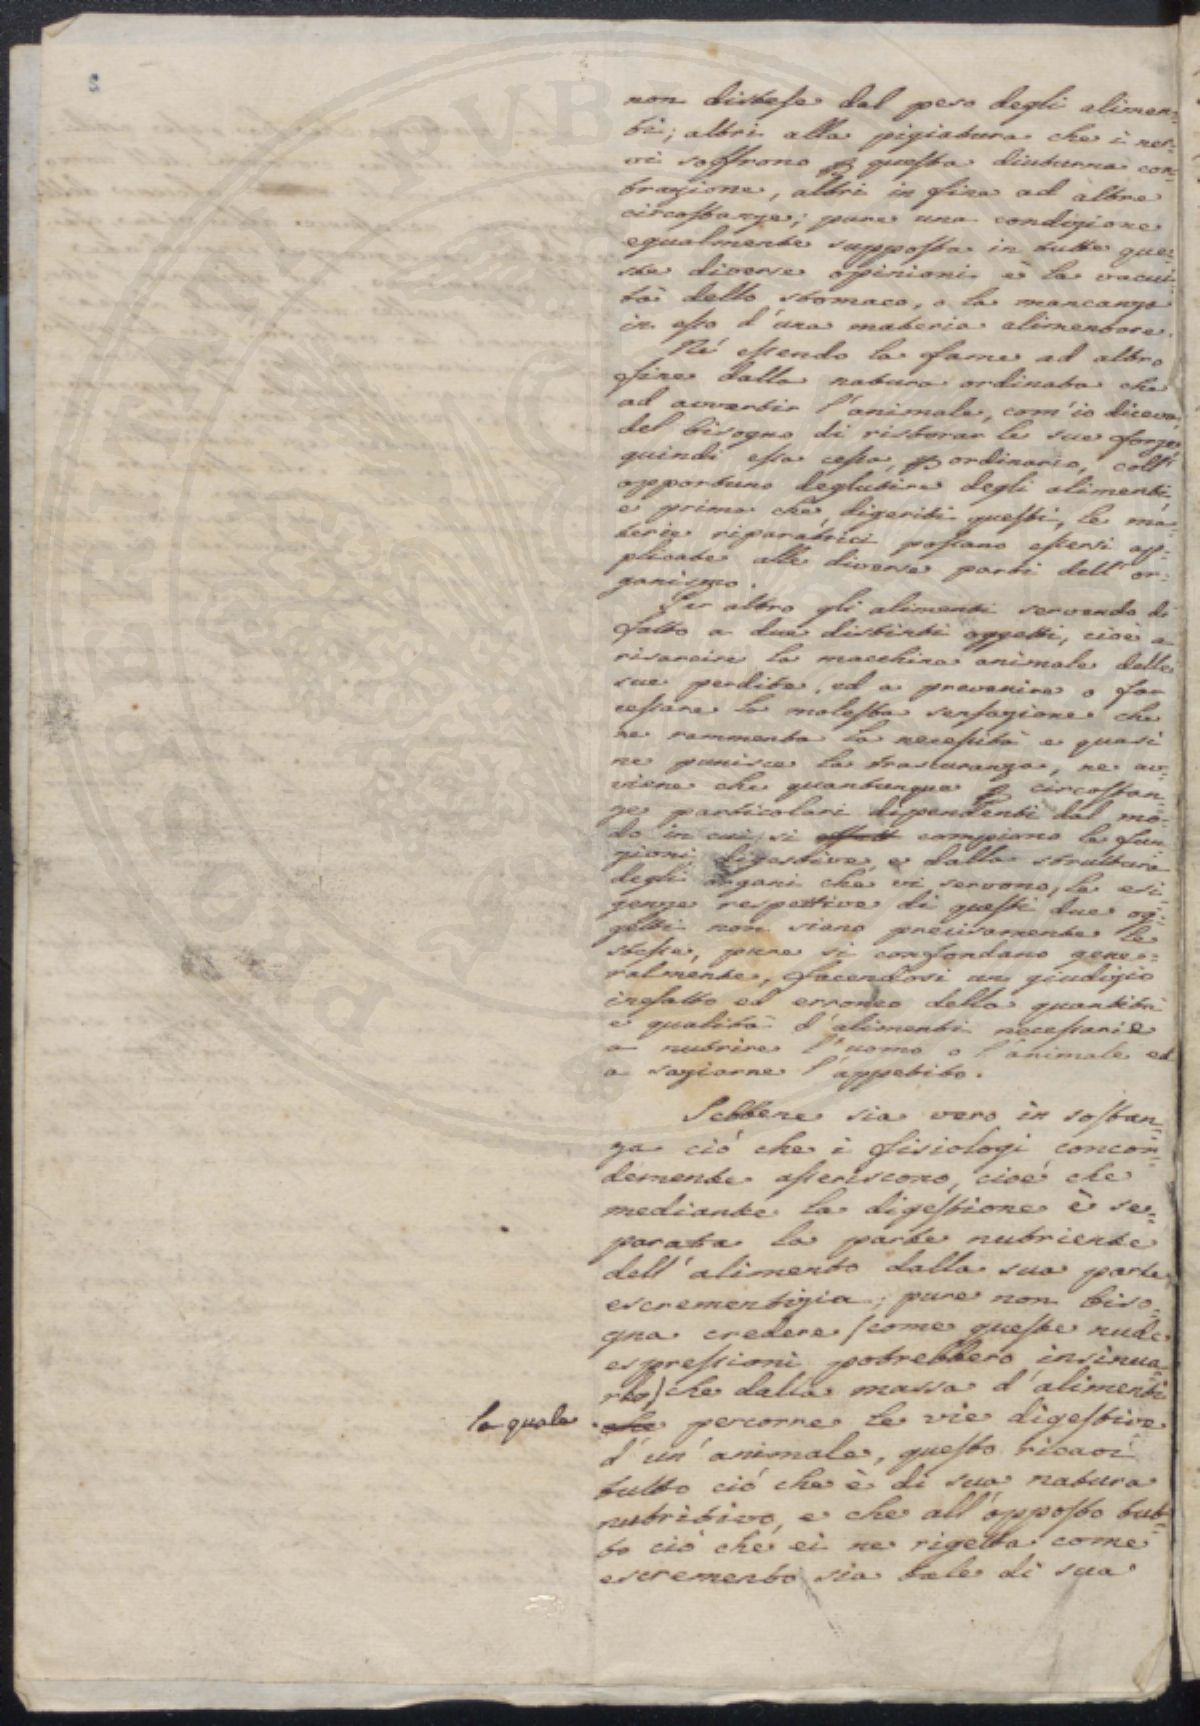 2
non distese dal peso degli alimen-
ti; altri alla pigiatura che i ner-
vi soffrono p questa diuturna con-
trazione, altri in fine ad altre
circostanze; pure una condizione
egualmente supposta in tutte que-
ste diverse opinioni è la vacui-
tà dello stomaco, o la mancanza
in esso d'una materia alimentare.
Né essendo la fame ad altro
fine dalla natura ordinata che
ad avvertir l'animale, com'io diceva,
del bisogno di ristorar le sue forze,
quindi essa cessa, p ordinario, coll'
opportuno deglutire degli alimenti,
e prima che digeriti questi, le ma-
terie riparatrici possano essersi ap-
plicate alle diverse parti dell'or-
ganismo.
Per altro gli alimenti servendo di
fatto a due distinti oggetti, cioè a
risarcire la macchina animale delle
sue perdite, ed a prevenire o far
cessare la molesta sensazione che
ne rammenta la necessità e quasi
ne punisce la trascuranza, ne av-
viene che quantunque p circostan-
ze particolari dipendenti dal mo-
do in cui si compiono le fun-
zioni digestive e dalla struttura
degli organi che vi servono, le esi-
genze respettive di questi due og-
getti non siano precisamente le
stesse, pure si confondano gene-
ralmente, facendosi un giudizio
inesatto ed erroneo della quantità
e qualità d'alimenti necessarie
a nutrire l'uomo o l'animale ed
a saziarne l'appetito.
Sebbene sia vero in sostan-
za ciò che i fisiologi concor-
demente asseriscono, cioè che
mediante la digestione è se-
parata la parte nutriente
dell'alimento dalla sua parte
escrementizia; pure non biso-
gna credere (come queste nude
espressioni potrebbero insinua-
rlo) che dalla massa d'alimenti
la quale che percorre le vie digestive
d'un animale, questo ricavi
tutto ciò che è di sua natura
nutritivo, e che all'opposto tut-
to ciò che ei ne rigetta come
escremento sia tale di sua